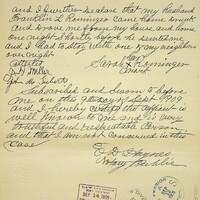 and I further declare that my husband
Franklin L. Rominger came home drunk
and drove me from my house and home
one night shortly before he
and I had to stay with one of my neighbors
one night
her
Attest Sarah X Rominger
J H Miller mark
John
Subscribed and Sworn to before
me on this 9th day of Sept 1909
and I hereby certify the affiant is
well known to me and is very
truthful and respectable person
and that I am not concerned in this
Case
E. D.
Notary Public
SEP 14 1909